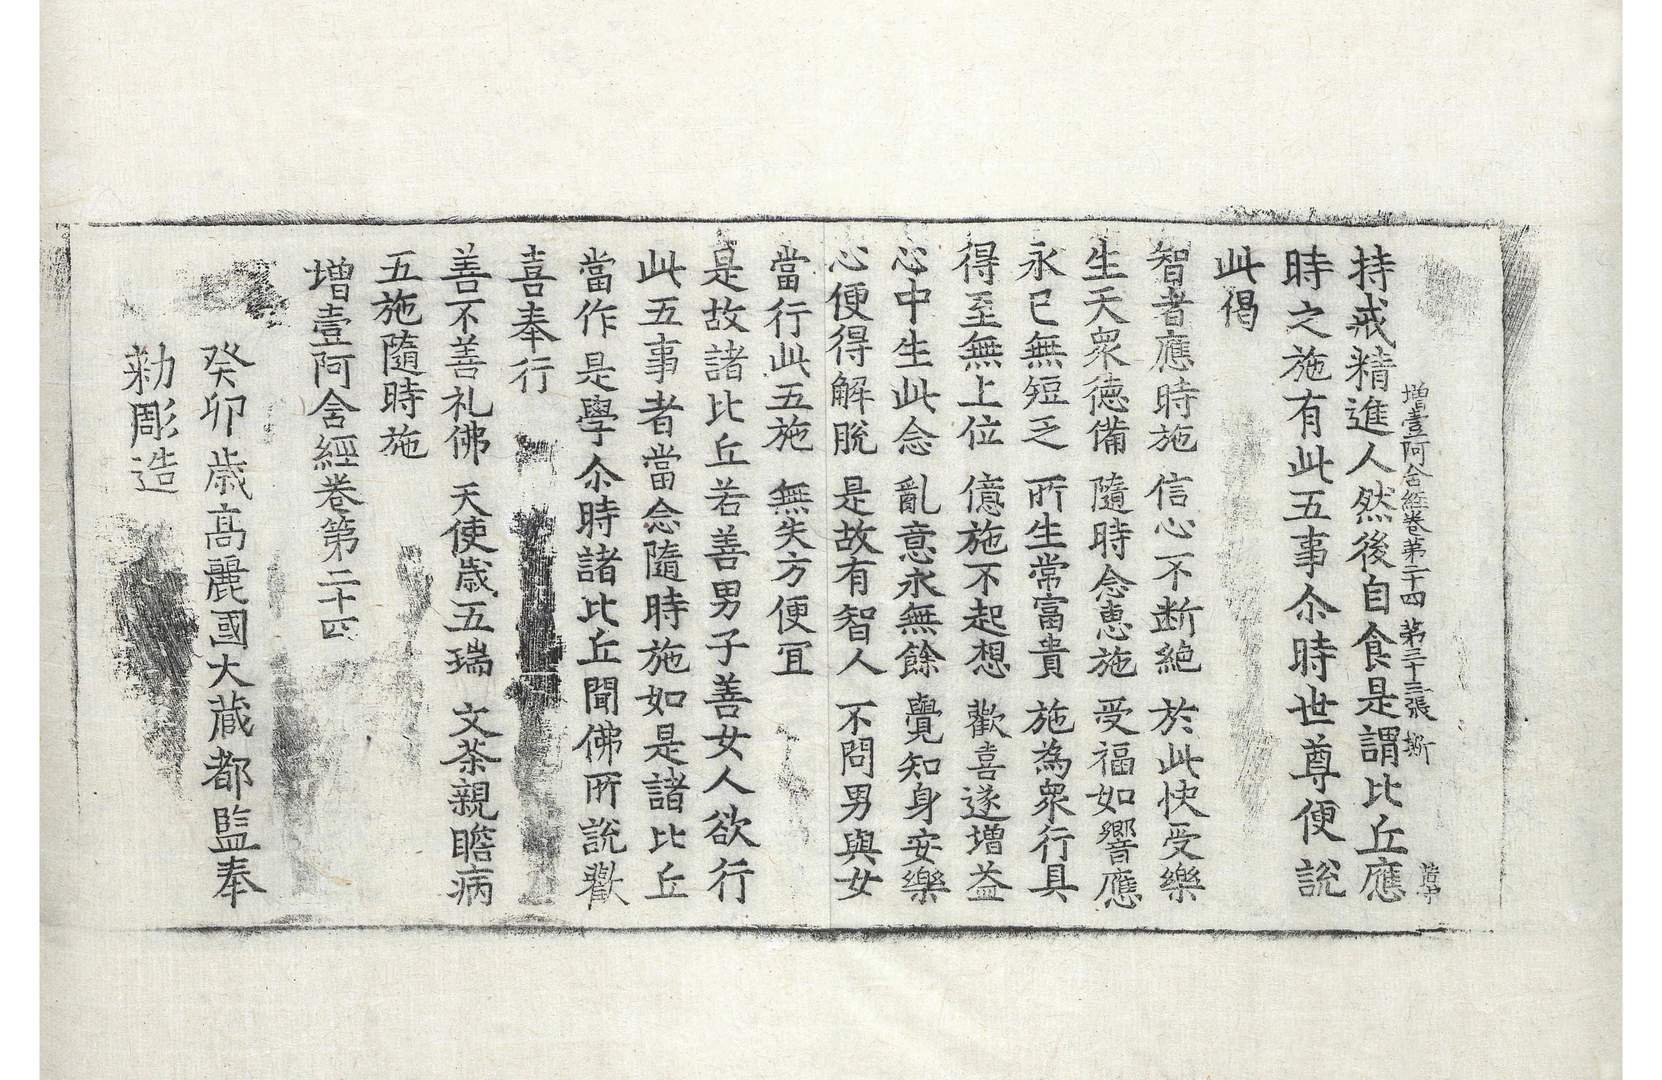 增壹阿含經卷第二十四 第三十三張 斯
持戒精進人然後自食是謂比丘應
時之施有此五事尒時世尊便說
此偈
智者應時施 信心不斷絕 於此快受樂
生天衆德備 隨時念惠施 受福如響應
永已無短乏 所生常富貴 施為衆行具
得至無上位 億施不起想 歡喜遂增益
心中生此念 亂意永無餘 覺知身安樂
心便得解脫 是故有智人 不問男與女
當行此五施 無失方便宜
是故諸比丘若善男子善女人欲行
此五事者當念隨時施如是諸比丘
當作是學尒時諸比丘聞佛所說歡
喜奉行
善不善礼佛 天使歲五瑞 文茶親瞻病
五施隨時施
增壹阿含經卷第二十四
癸卯歲高麗國大藏都監奉
勅彫造